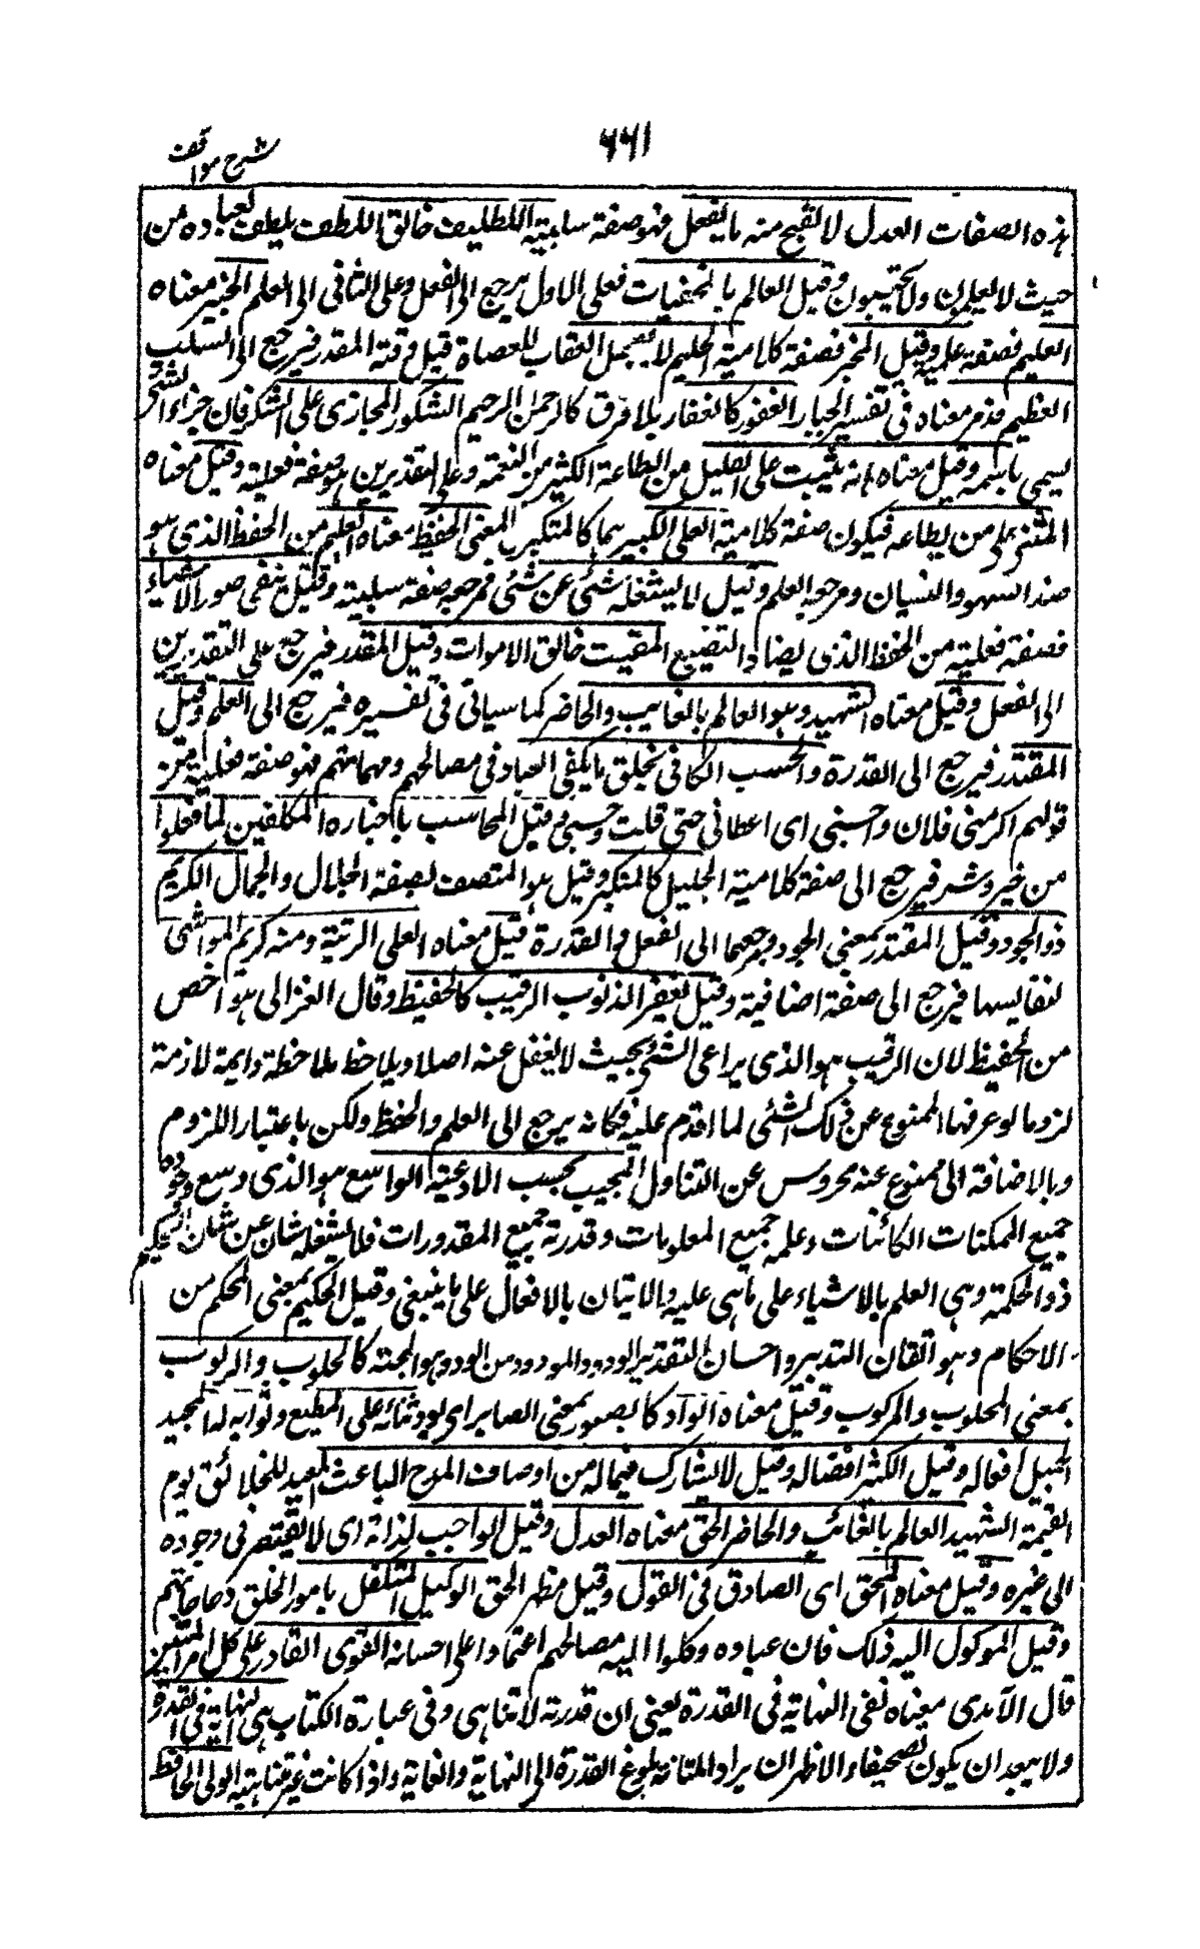 ۶۶۱
شرح مواقف
هذه الصفات العدل لا يقبح منه ما يفعل فهو صفة سلبية اللطيف خالق اللطف يلطف بعباده من
حيث لا يعلمون ولا يحتسبون وقيل العالم بالخفيات فعلى الاول يرجع الى الفعل وعلى الثانى الى العلم الخبير معناه
العليم فصفة علمية وقيل المخبر فصفة كلامية الحليم لا يعجل العقاب للعصاة قبل وقته المقدر فيرجع الى السلب
العظيم قد مر معناه فى تفسير الجبار الغفور كالغفار بلا فرق كالرحمن الرحيم الشكور المجازى على الشكر فان جزاء الشئ
يسمى باسمه وقيل معناه انه يثيب على القليل من الطاعة الكثير من النعمة وعلى التقديرين هو صفة فعلية وقيل معناه
المثنى على من يطاعه فيكون صفة كلامية العلى الكبير هما كالمتكبر فى المعنى الحفيظ معناه العليم من الحفظ الذى هو
ضد السهو والنسيان ومرجعه العلم وقيل لا يشغله شئ عن شئ فمرجعه صفة سلبية وقيل يبقى صور الاشياء
فصفة فعلية من الحفظ الذى يضاد التضييع المقيت خالق الاموات وقيل المقدر فيرجع على التقديرين
الى الفعل وقيل معناه الشهيد وهو العالم بالغايب والحاضر كما سياتى فى تفسيره فيرجع الى العلم وقيل
المقتدر فيرجع الى القدرة والحسب الكافى يخلق ما يكفى العباد فى مصالحهم ومهماتهم فهو صفة فعلية من
قولهم اكرمنى فلان واحسبنى اى اعطانى حتى قلت وحسبى وقيل المحاسب باخباره المكلفين لما فعلوا
من خير وشر فيرجع الى صفة كلامية الجليل كالمتكبر وقيل هو المتصف بصفة الجلال والجمال الكريم
ذو الجود وقيل المقتدر بمعنى الجود ومرجعهما الى الفعل والقدرة قيل معناه العلى الرتبة ومنه كريم المواشى
لنفايسها فيرجع الى صفة اضافية وقيل يغفر الذنوب الرقيب كالحفيظ وقال الغزالى هو اخص
من الحفيظ لان الرقيب هو الذى يراعى الشئ بحيث لا يغفل عنه اصلا ويلاحظ ملاحظة دايمة لازمة
لزوما لو عرفها الممنوع عن ذلك الشئى لما اقدم عليه فكانه يرجع الى العلم والحفظ ولكن باعتبار اللزوم
وبالاضافة الى ممنوع عنه محروس عن التناول المجيب يجيب الادعية الواسع هو الذى وسع وجوده
جميع الممكنات الكائنات وعلمه جميع المعلومات وقدرته جميع المقدورات فلا يشغله شان عن شان الحكيم
ذو الحكمة وهى العلم بالاشياء على ما هى عليه والاتيان بالافعال على ما ينبغى وقيل الحكيم بمعنى المحكم من
الاحكام وهو اتقان التدبير واحسان التقدير الودود المودود من الود وهو المحبة كالحلوب والركوب
بمعنى المحلوب والمركوب وقيل معناه الواد كالصبور بمعنى الصابر اى يود ثنائه على المطيع وثوابه له المجيد
الجميل افعاله وقيل الكثير افضاله وقيل لا يشارك فيما له من اوصاف المدح الباعث المعيد للخلائق يوم
القيمة الشهيد العالم بالغائب والحاضر الحق معناه العدل وقيل الواجب لذاته اى لا يفتقر فى وجوده
الى غيره وقيل معناه المحق اى الصادق فى القول وقيل مظهر الحق الوكيل المتكفل بامور الخلق وحاجاتهم
وقيل الموكول اليه ذلك فان عباده وكلوا اليه مصالحهم اعتمادا على احسانه القوى القادر على كل امر المتين
قال الآمدى معناه نفى النهاية فى القدرة يعنى ان قدرته لا تتناهى وفى عبارة الكتاب هى النهاية فى القدرة
ولا يبعد ان يكون تصحيفا والاظهر ان يراد المتانة بلوغ القدرة الى النهاية والغاية واذا كانت غير متناهية الولى الحافظ